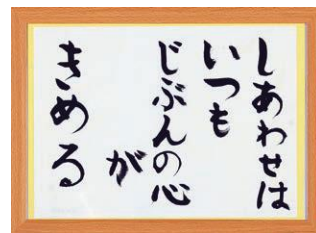 しあわせは
いつも
じぶんの心
が
きめる